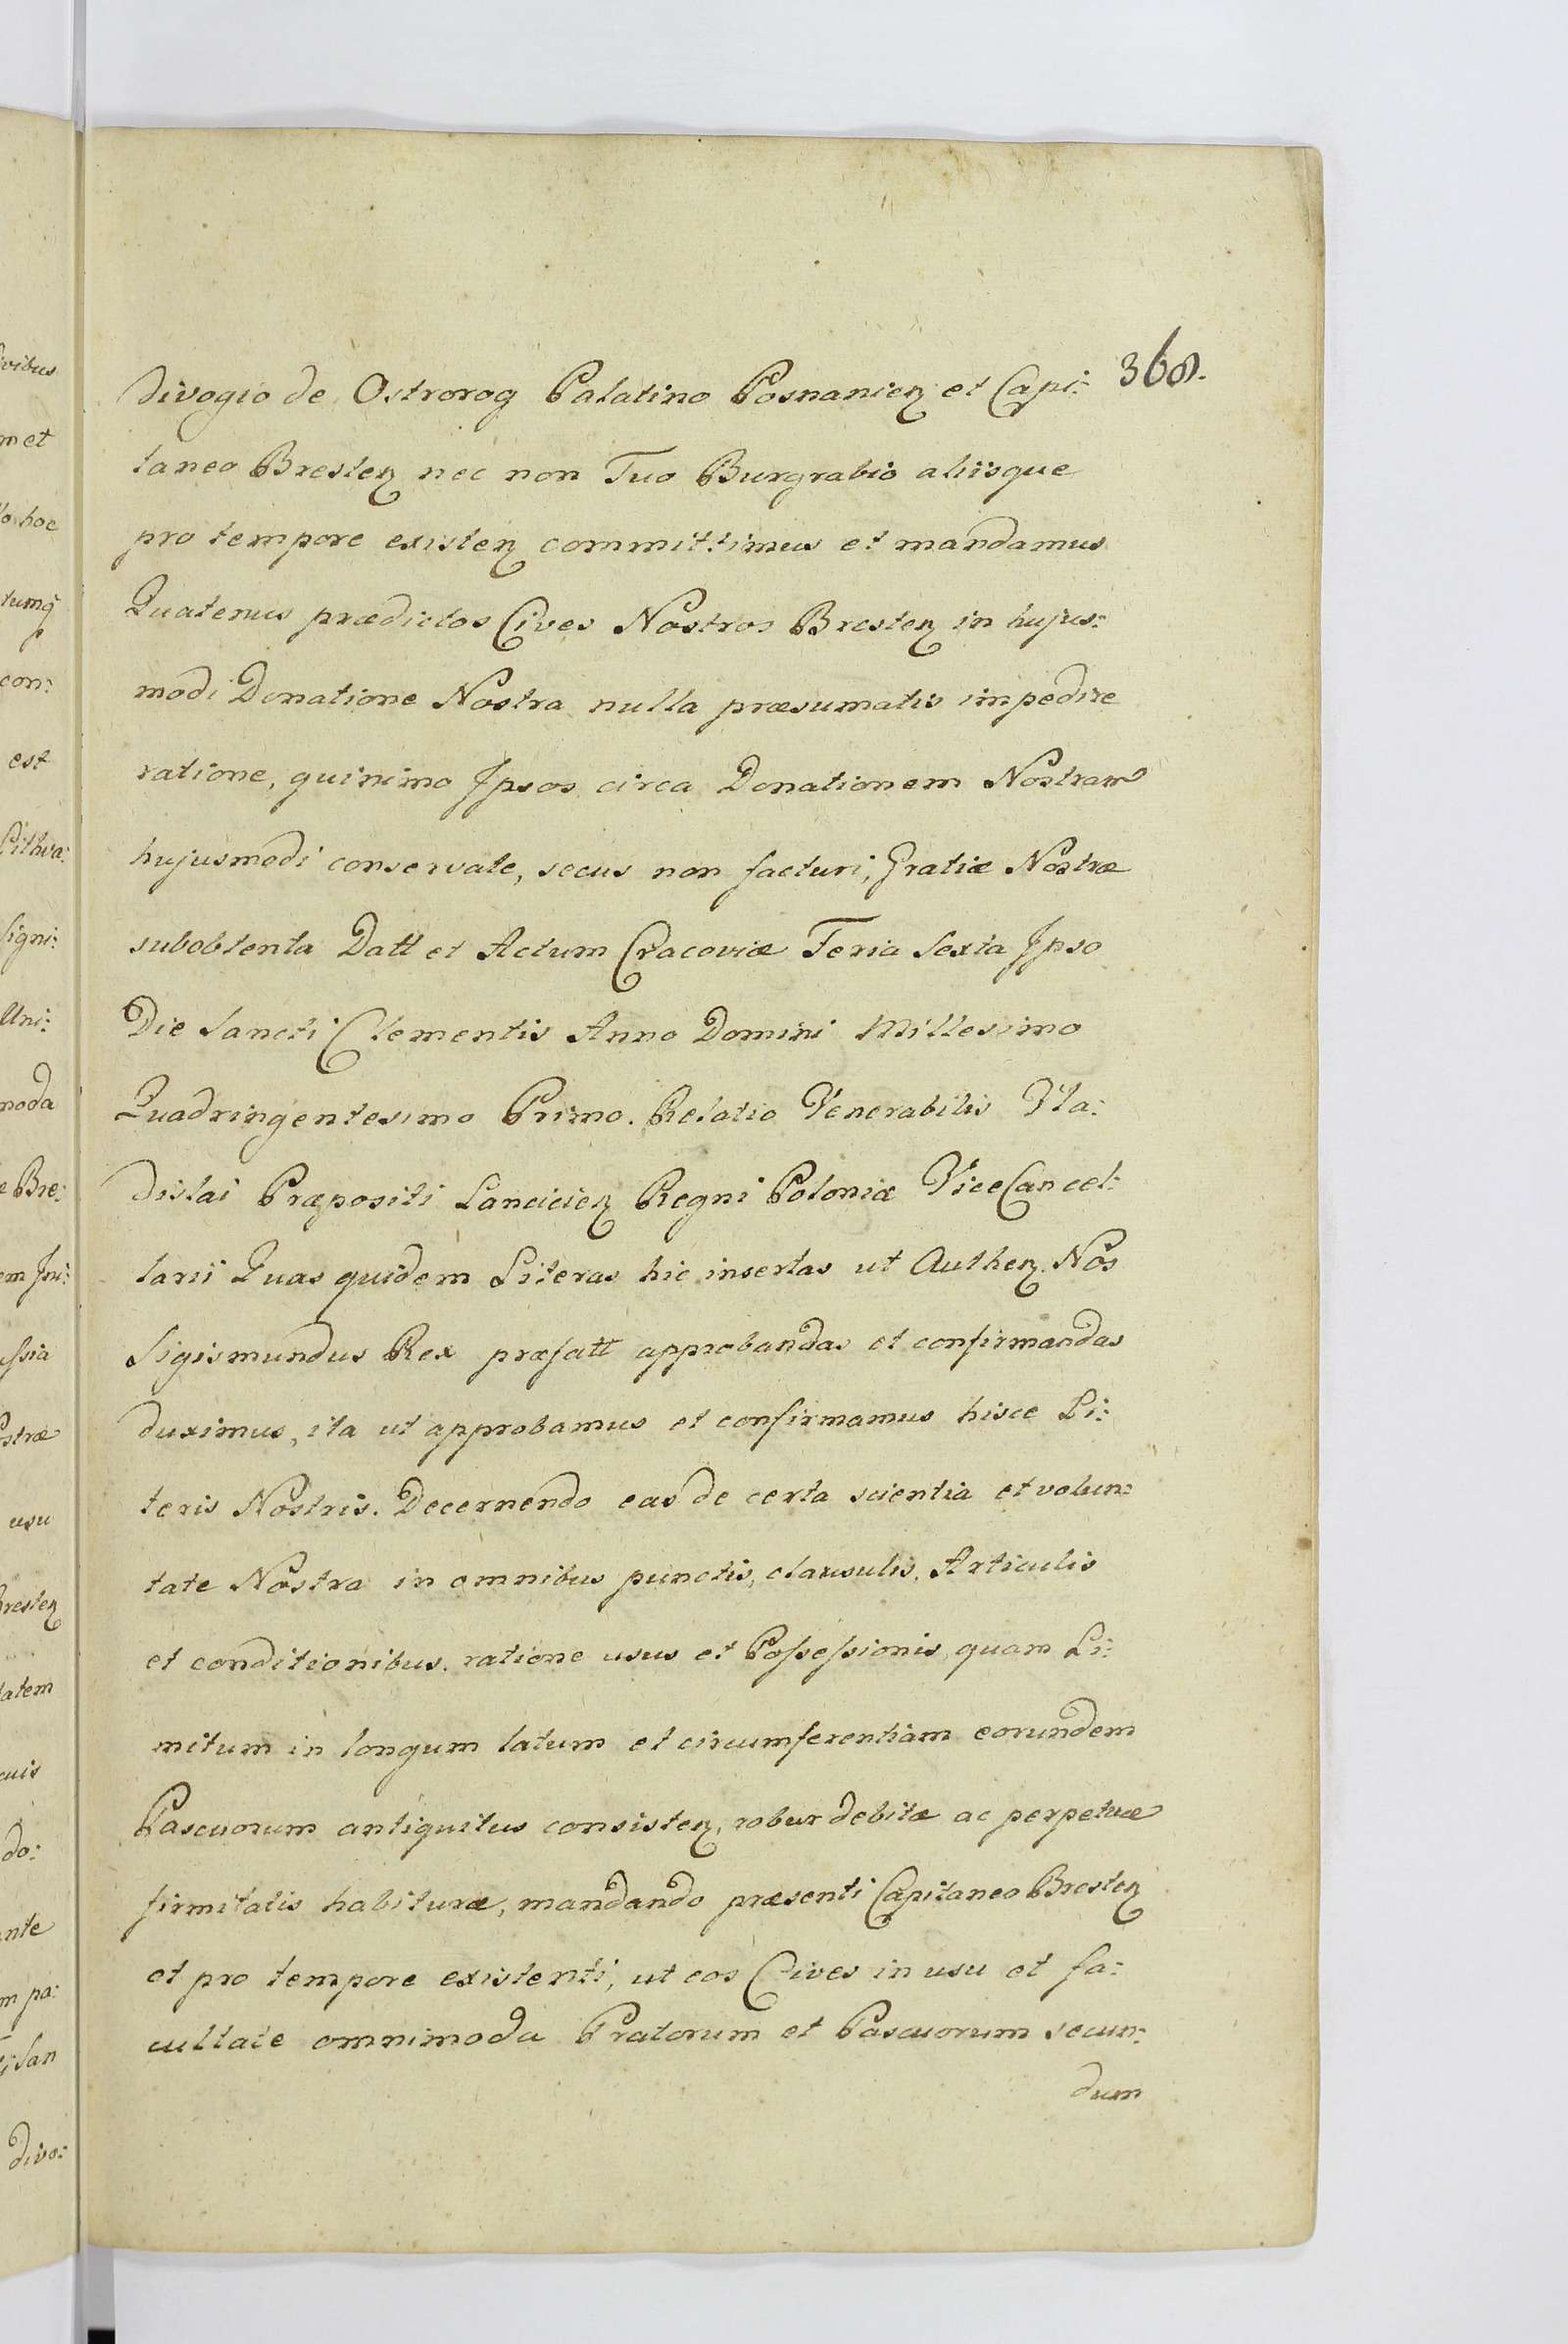 368.
divogio de Ostrorog Palatino Posnanien et Capi:
taneo Bresten nec non Tuo Burgrabio aliisque
pro tempore existen committimus et mandamus
Quatenus prædictos Cives Nostros Bresten in hujus:
modi Donatione Nostra nulla præsumatis impedire
ratione, quinimo Ipsos circa Donationem Nostram
hujusmodi conservate, secus non facturi, Gratiæ Nostræ
subobtenta Datt et Actum Cracoviæ Feria Sexta Ipso
Die Sancti Clementis Anno Domini Millesimo
Quadringentesimo Primo. Relatio Venerabilis Vla:
dislai Præpositi Lancicien Regni Poloniæ ViceCancel:
larii Quas quidem Literas hic insertas ut Authen. Nos
Sigismundus Rex præfatt approbandas et confirmandas
duximus, ita ut approbamus et confirmamus hisce Li:
teris Nostris. Decernendo eas de certa scientia et volun:
tate Nostra in omnibus punctis, clausulis, Articulis
et conditionibus, ratione usus et Possessionis, quam Li:
mitum in longum latum et circumferentiam eorundem
Pascuorum antiquitus consisten, robur debitæ ac perpetuæ
firmitatis habituræ, mandando præsenti Capitaneo Bresten
et pro tempore existenti, ut eos Cives in usu et fa:
cultate omnimoda Pratorum et Pascuorum secun:
dum
met
hoc
con:
est
Signi:
Uni:
moda
Bre:
usu
do:
pa:
San
divo: